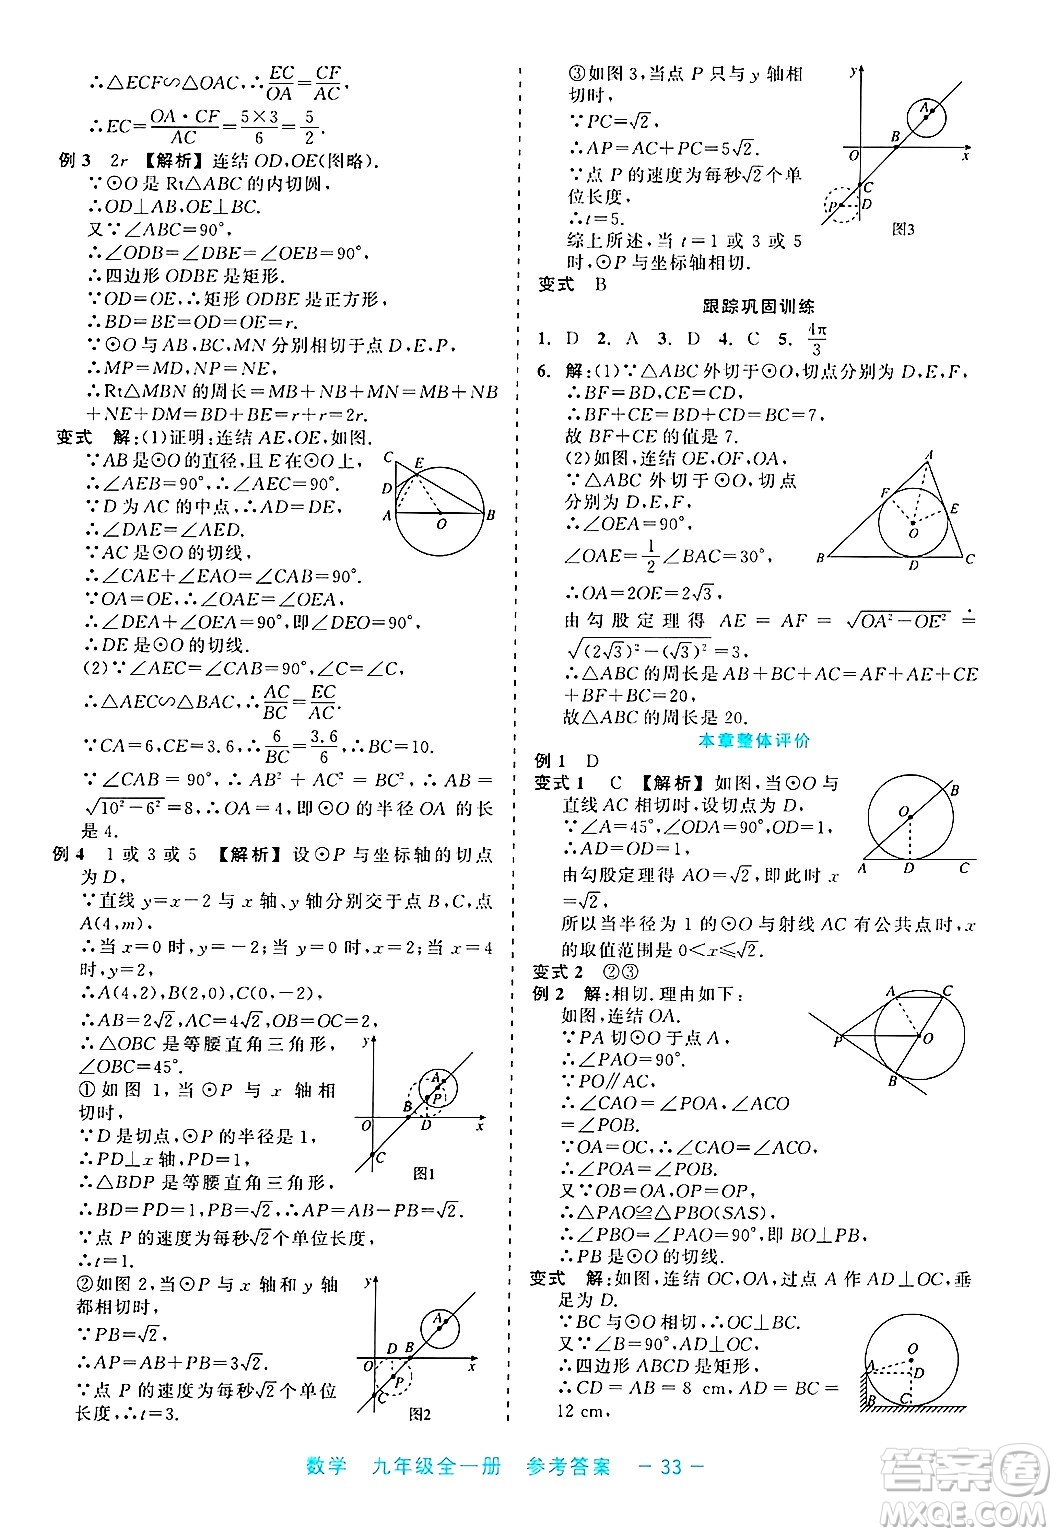 ∴△ECF∽△OAC,∴EC/OA=CF/AC,
∴EC=OA·CF/AC=5×3/6=5/2.
例 3 2r 【解析】连结 OD,OE(图略).
∵⊙O 是 Rt△ABC 的内切圆,
∴OD⊥AB,OE⊥BC.
又∵∠ABC=90°,
∴∠ODB=∠DBE=∠OEB=90°,
∴四边形 ODBE 是矩形.
∵OD=OE,∴矩形 ODBE 是正方形,
∴BD=BE=OD=OE=r.
∵⊙O 与 AB,BC,MN 分别相切于点 D,E,P,
∴MP=MD,NP=NE,
∴Rt△MBN 的周长=MB+NB+MN=MB+NB
+NE+DM=BD+BE=r+r=2r.
变式 解:(1)证明:连结 AE,OE,如图.
∵AB 是⊙O 的直径,且 E 在⊙O 上,
∴∠AEB=90°,∴∠AEC=90°.
∵D 为 AC 的中点,∴AD=DE,
∴∠DAE=∠AED.
∵AC 是⊙O 的切线,
∴∠CAE+∠EAO=∠CAB=90°.
∵OA=OE,∴∠OAE=∠OEA,
∴∠DEA+∠OEA=90°,即∠DEO=90°,
∴DE 是⊙O 的切线.
(2)∵∠AEC=∠CAB=90°,∠C=∠C,
∴△AEC∽△BAC,∴AC/BC=EC/AC.
∵CA=6,CE=3.6,∴6/BC=3.6/6,∴BC=10.
∵∠CAB = 90°, ∴ AB² + AC² = BC², ∴ AB =
√(10²-6²)=8,∴OA=4,即⊙O 的半径 OA 的长
是 4.
C E D A O B
例 4 1 或 3 或 5 【解析】设⊙P 与坐标轴的切点
为 D,
∵直线 y=x-2 与 x 轴、y 轴分别交于点 B,C,点
A(4,m),
∴当 x=0 时,y=-2;当 y=0 时,x=2;当 x=4
时,y=2,
∴A(4,2),B(2,0),C(0,-2),
∴AB=2√2,AC=4√2,OB=OC=2,
∴△OBC 是等腰直角三角形,
∠OBC=45°.
①如图 1,当⊙P 与 x 轴相
切时,
∵D 是切点,⊙P 的半径是 1,
∴PD⊥x 轴,PD=1,
∴△BDP 是等腰直角三角形,
∴BD=PD=1,PB=√2,∴AP=AB-PB=√2.
∵点 P 的速度为每秒√2个单位长度,
∴t=1.
y A B P O D x C
图1
②如图 2,当⊙P 与 x 轴和 y 轴
都相切时,
∵PB=√2,
∴AP=AB+PB=3√2.
∵点 P 的速度为每秒√2个单位
长度,∴t=3.
y A D B O x P C
图2
③如图 3,当点 P 只与 y 轴相
切时,
∵PC=√2,
∴AP=AC+PC=5√2.
∵点 P 的速度为每秒√2个单
位长度,
∴t=5.
综上所述,当 t=1 或 3 或 5
时,⊙P 与坐标轴相切.
y A O B x C P D
图3
变式 B
跟踪巩固训练
1. D 2. A 3. D 4. C 5. 4π/3
6. 解:(1)∵△ABC 外切于⊙O,切点分别为 D,E,F,
∴BF=BD,CE=CD,
∴BF+CE=BD+CD=BC=7,
故 BF+CE 的值是 7.
(2)如图,连结 OE,OF,OA.
∵△ABC 外切于⊙O,切点
分别为 D,E,F,
∴∠OEA=90°,
∠OAE=1/2∠BAC=30°,
∴OA=2OE=2√3,
A F E O B D C
由 勾 股 定 理 得 AE = AF = √(OA²-OE²) =
√((2√3)²-(√3)²)=3,
∴△ABC 的周长是 AB+BC+AC=AF+AE+CE
+BF+BC=20,
故△ABC 的周长是 20.
本章整体评价
例 1 D
变式 1 C 【解析】如图,当⊙O 与
直线 AC 相切时,设切点为 D,
∵∠A=45°,∠ODA=90°,OD=1,
∴AD=OD=1,
由勾股定理得 AO=√2,即此时 x
=√2,
所以当半径为 1 的⊙O 与射线 AC 有公共点时,x
的取值范围是 0<x≤√2.
B O A D C
变式 2 ②③
例 2 解:相切.理由如下:
如图,连结 OA.
∵PA 切⊙O 于点 A,
∴∠PAO=90°.
∵PO∥AC,
∴∠CAO=∠POA,∠ACO
=∠POB.
∵OA=OC,∴∠CAO=∠ACO,
∴∠POA=∠POB.
又∵OB=OA,OP=OP,
∴△PAO≌△PBO(SAS),
∴∠PBO=∠PAO=90°,即 BO⊥PB,
∴PB 是⊙O 的切线.
A C P O B
变式 解:如图,连结 OC,OA,过点 A 作 AD⊥OC,垂
足为 D.
∵BC 与⊙O 相切,∴OC⊥BC.
又∵∠B=90°,AD⊥OC,
∴四边形 ABCD 是矩形,
∴CD = AB = 8 cm,AD = BC =
12 cm,
O A D B C
数学 九年级全一册 参考答案 －33－
答案圈
MXQE.COM